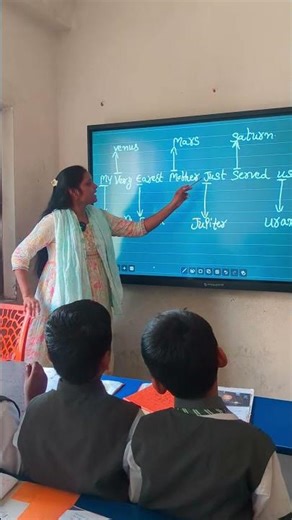 venus Mars Saturn
My Very Earest Mother Just Served us
Jupiter Uran